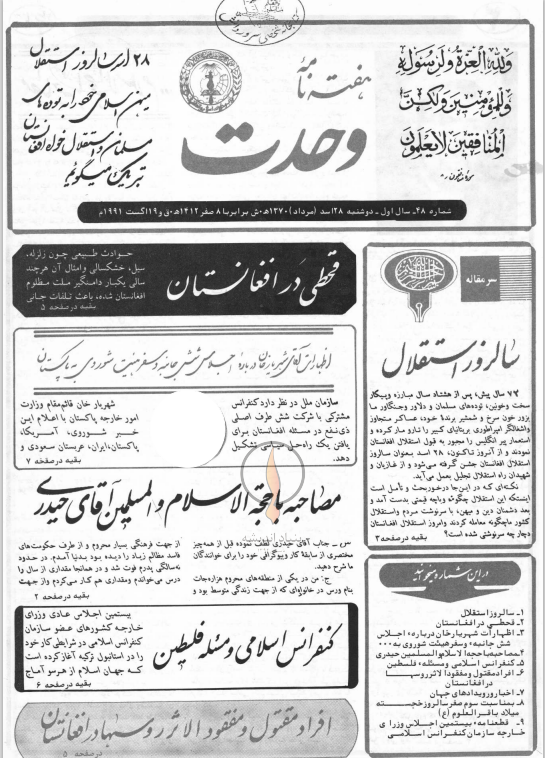 ۲۸ اسد سالروز استقلال
میهن اسلامی خود را به توده های
مسلمان و استقلال خواه افغانستان
تبریک میگوئیم
هفته نامه
وحدت
ولله العزة ولرسوله
وللمؤمنین ولکن
المنافقین لایعلمون
شماره ۴۸ـ سال اول ـ دوشنبه ۲۸ اسد (مرداد) ۱۳۷۰ه‍.ش برابر با ۸ صفر ۱۴۱۲ه‍.ق و ۱۹ اگست ۱۹۹۱م
سرمقاله
سالروز استقلال
۷۲ سال پیش، پس از هشتاد سال مبارزه وپیکار
سخت وخونین، توده‌های مسلمان و دلاور وجنگاور ما
بزور خون سرخ و شمشیر برندهٔ خود، عساکر متجاوز
واشغالگر امپراطوری بریتانیای کبیر را تارو مار کرده و
استعمار پیر انگلیس را مجبور به قبول استقلال افغانستان
نمودند و از آنروز تاکنون، ۲۸ اسد بعنوان سالروز
استقلال افغانستان جشن گرفته می‌شود و از غازیان و
شهیدان راه استقلال تجلیل بعمل می‌آید.
نکته‌ای که در این‌جا درخوربحث و تأمل است
اینستکه این استقلال چگونه وباچه قیمتی بدست آمد و
بعد دشمنان دین و میهن، با سرنوشت مردم واستقلال
کشور ماچگونه معامله کردند وامروز استقلال افغانستان
دچار چه سرنوشتی شده است؟
بقیه درصفحه۳
در این شماره میخوانید
۱ـ سالروز استقلال
۲ـ قحطی در افغانستان
۳ـ اظهارات شهریارخان درباره اجلاس
شش جانبه وسفرهیئت شوروی به...
۴ـ مصاحبه باحجةالاسلام والمسلمین حیدری
۵ـ کنفرانس اسلامی ومسئله فلسطین
۶ـ افراد مقتول ومفقودالاثرروسها
درافغانستان
۷ـ اخبار ورویدادهای جهان
۸ـ بمناسبت سوم صفرسالروزخجسته
میلاد باقرالعلوم (ع)
۹ـ قطعنامه بیستمین اجلاس وزرای
خارجه سازمان کنفرانس اسلامی
قحطی در افغانستان
حوادث طبیعی چون زلزله،
سیل، خشکسالی وامثال آن هرچند
سالی یکبار دامنگیر ملت مظلوم
افغانستان شده، باعث تلفات جانی
بقیه درصفحه ۵
اظهارات آقای شهریارخان درباره اجلاس شش جانبه وسفر هیئت شوروی به پاکستان
سازمان ملل در نظر دارد کنفرانس
مشترکی با شرکت شش طرف اصلی
ذی‌نفع در مسئله افغانستان برای
یافتن یک راه‌حل جانبی تشکیل
دهد.
شهریار خان قائم‌مقام وزارت
امور خارجه پاکستان با اعلام این
خبر شوروی، آمریکا،
پاکستان، ایران، عربستان سعودی و
بقیه درصفحه ۷
مصاحبه با حجة الاسلام والمسلمین آقای حیدری
س ـ جناب آقای حیدری لطف نموده قبل از همه‌چیز
مختصری از سابقهٔ کار وبیوگرافی خود را برای خوانندگان
ما شرح دهید.
ج: من در یکی از منطقه‌های محروم هزاره‌جات
بنام ورس در خانواده‌ای که از جهت زندگی متوسط بود و
از جهت فرهنگی بسیار محروم و از طرف حکومت‌های
فاسد مظالم زیاد را دیده بود بدنیا آمدم. در حدود
نه‌سالگی پدرم فوت شد و در همانجا مقداری از سال را
درس می‌خواندم ومقداری هم کار می‌کردم واز جهت
بقیه درصفحه ۲
کنفرانس اسلامی و مسئله فلسطین
بیستمین اجلاس عادی وزرای
خارجه کشورهای عضو سازمان
کنفرانس اسلامی در شرایطی کار خود
را در استانبول ترکیه آغاز کرده است
که جهان اسلام از هرسو آماج
بقیه درصفحه ۶
افراد مقتول و مفقود الاثر روسها در افغانستان
درصفحه ۵